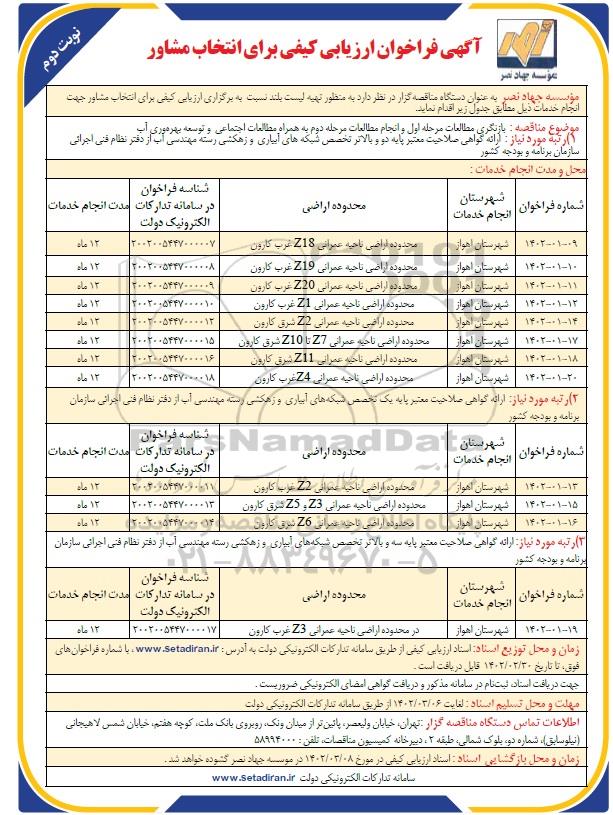 نوبت دوم
موسسه جهاد نصر
آگهی فراخوان ارزیابی کیفی برای انتخاب مشاور
مؤسسه جهاد نصر به عنوان دستگاه مناقصه‌گزار در نظر دارد به منظور تهیه لیست بلند نسبت به برگزاری ارزیابی کیفی برای انتخاب مشاور جهت
انجام خدمات ذیل مطابق جدول زیر اقدام نماید.
موضوع مناقصه : بازنگری مطالعات مرحله اول و انجام مطالعات مرحله دوم به همراه مطالعات اجتماعی و توسعه بهره‌وری آب
۱)رتبه مورد نیاز : ارائه گواهی صلاحیت معتبر پایه دو و بالاتر تخصص شبکه های آبیاری و زهکشی رسته مهندسی آب از دفتر نظام فنی اجرائی
سازمان برنامه و بودجه کشور
محل و مدت انجام خدمات :
شماره فراخوان شهرستان انجام خدمات محدوده اراضی شناسه فراخوان در سامانه تدارکات الکترونیک دولت مدت انجام خدمات
۱۴۰۲-۰۱-۰۹ شهرستان اهواز محدوده اراضی ناحیه عمرانی Z18 غرب کارون ۲۰۰۲۰۰۵۴۴۷۰۰۰۰۰۷ ۱۲ ماه
۱۴۰۲-۰۱-۱۰ شهرستان اهواز محدوده اراضی ناحیه عمرانی Z19 غرب کارون ۲۰۰۲۰۰۵۴۴۷۰۰۰۰۰۸ ۱۲ ماه
۱۴۰۲-۰۱-۱۱ شهرستان اهواز محدوده اراضی ناحیه عمرانی Z20 غرب کارون ۲۰۰۲۰۰۵۴۴۷۰۰۰۰۰۹ ۱۲ ماه
۱۴۰۲-۰۱-۱۲ شهرستان اهواز محدوده اراضی ناحیه عمرانی Z1 غرب کارون ۲۰۰۲۰۰۵۴۴۷۰۰۰۰۱۰ ۱۲ ماه
۱۴۰۲-۰۱-۱۴ شهرستان اهواز محدوده اراضی ناحیه عمرانی Z2 شرق کارون ۲۰۰۲۰۰۵۴۴۷۰۰۰۰۱۲ ۱۲ ماه
۱۴۰۲-۰۱-۱۷ شهرستان اهواز محدوده اراضی ناحیه عمرانی Z7 تا Z10 شرق کارون ۲۰۰۲۰۰۵۴۴۷۰۰۰۰۱۵ ۱۲ ماه
۱۴۰۲-۰۱-۱۸ شهرستان اهواز محدوده اراضی ناحیه عمرانی Z11 شرق کارون ۲۰۰۲۰۰۵۴۴۷۰۰۰۰۱۶ ۱۲ ماه
۱۴۰۲-۰۱-۲۰ شهرستان اهواز محدوده اراضی ناحیه عمرانی Z4 غرب کارون ۲۰۰۲۰۰۵۴۴۷۰۰۰۰۱۸ ۱۲ ماه
۲)رتبه مورد نیاز: ارائه گواهی صلاحیت معتبر پایه یک تخصص شبکه‌های آبیاری و زهکشی رسته مهندسی آب از دفتر نظام فنی اجرائی سازمان
برنامه و بودجه کشور
شماره فراخوان شهرستان انجام خدمات محدوده اراضی شناسه فراخوان در سامانه تدارکات الکترونیک دولت مدت انجام خدمات
۱۴۰۲-۰۱-۱۳ شهرستان اهواز محدوده اراضی ناحیه عمرانی Z2 غرب کارون ۲۰۰۲۰۰۵۴۴۷۰۰۰۰۱۱ ۱۲ ماه
۱۴۰۲-۰۱-۱۵ شهرستان اهواز محدوده اراضی ناحیه عمرانی Z3 و Z5 شرق کارون ۲۰۰۲۰۰۵۴۴۷۰۰۰۰۱۳ ۱۲ ماه
۱۴۰۲-۰۱-۱۶ شهرستان اهواز محدوده اراضی ناحیه عمرانی Z6 شرق کارون ۲۰۰۲۰۰۵۴۴۷۰۰۰۰۱۴ ۱۲ ماه
۳)رتبه مورد نیاز: ارائه گواهی صلاحیت معتبر پایه سه و بالاتر تخصص شبکه‌های آبیاری و زهکشی رسته مهندسی آب از دفتر نظام فنی اجرائی سازمان
برنامه و بودجه کشور
شماره فراخوان شهرستان انجام خدمات محدوده اراضی شناسه فراخوان در سامانه تدارکات الکترونیک دولت مدت انجام خدمات
۱۴۰۲-۰۱-۱۹ شهرستان اهواز در محدوده اراضی ناحیه عمرانی Z3 غرب کارون ۲۰۰۲۰۰۵۴۴۷۰۰۰۰۱۷ ۱۲ ماه
زمان و محل توزیع اسناد: اسناد ارزیابی کیفی از طریق سامانه تدارکات الکترونیکی دولت به آدرس : www.Setadiran.ir ، با شماره فراخوان‌های
فوق، تا تاریخ ۱۴۰۲/۰۲/۳۰ قابل دریافت است .
جهت دریافت اسناد، ثبت‌نام در سامانه مذکور و دریافت گواهی امضای الکترونیکی ضروریست .
مهلت و محل تسلیم اسناد : لغایت ۱۴۰۲/۰۳/۰۶ از طریق سامانه تدارکات الکترونیکی دولت
اطلاعات تماس دستگاه مناقصه گزار :تهران، خیابان ولیعصر، پائین‌تر از میدان ونک، روبروی بانک ملت، کوچه هفتم، خیابان شمس لاهیجانی
(نیلوسابق)، شماره دو، بلوک شمالی، طبقه ۲ ، دبیرخانه کمیسیون مناقصات، تلفن : ۵۸۹۹۴۰۰۰
زمان و محل بازگشایی اسناد : اسناد ارزیابی کیفی در مورخ ۱۴۰۲/۰۳/۰۸ در موسسه جهاد نصر گشوده خواهد شد .
سامانه تدارکات الکترونیکی دولت www.Setadiran.ir
ParsNamadData
۰۲۱-۸۸۳۴۹۶۷۰-۵